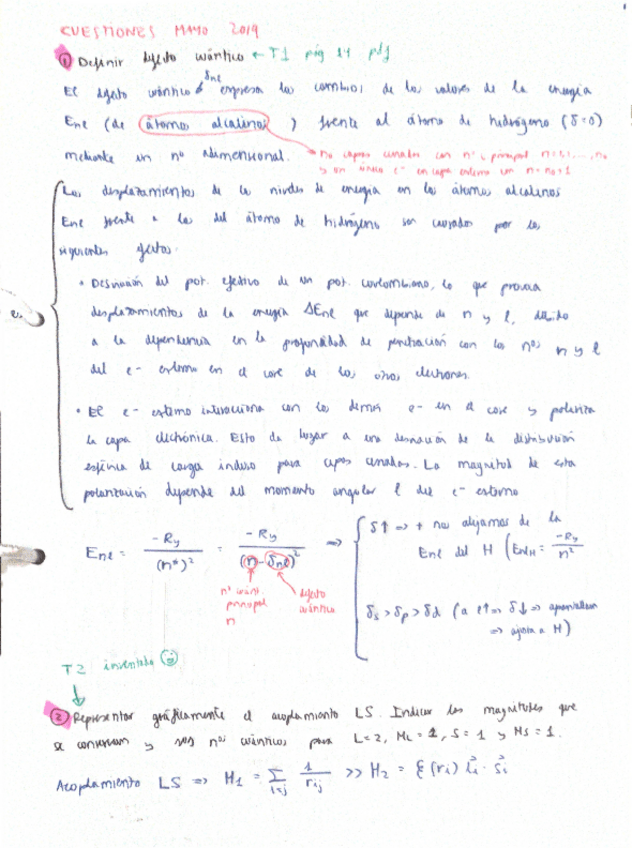 CUESTIONES MAYO 2019
① Definir defecto cuántico ← T1 pág 14 pdf
El defecto cuántico δne expresa los cambios de los valores de la energía
Ene (de átomos alcalinos) frente al átomo de hidrógeno (δ=0)
mediante un nº adimensional. → no capas cerradas con nº principal n=1, ..., n₀
y un único e⁻ en capa externa con n=n₀+1
Los desplazamientos de los niveles de energía en los átomos alcalinos
Ene frente a los del átomo de hidrógeno son causados por los
siguientes efectos:
• Desviación del pot. efectivo de un pot. coulombiano, lo que provoca
desplazamientos de la energía ΔEne que depende de n y l, debido
a la dependencia en la profundidad de penetración con los nos n y l
del e⁻ externo en el core de los otros electrones.
2.
• El e⁻ externo interacciona con los demás e⁻ en el core y polariza
la capa electrónica. Esto da lugar a una desviación de la distribución
esférica de carga incluso para capas cerradas. La magnitud de esta
polarización depende del momento angular l del e⁻ externo
Ene = -Ry / (n*)² = -Ry / (n - δne)² ⇒
δ↑ ⇒ + nos alejamos de la
Ene del H (EneH = -Ry / n²
nº cuánt. principal n
defecto cuántico
δs > δp > δd (a l↑ ⇒ δ↓ ⇒
⇒ a H)
T2 inventada ☺
② Representar gráficamente el acoplamiento LS. Indicar las magnitudes que
se conservan y sus nos cuánticos para L=2, ML=1, S=1 y MS=1.
Acoplamiento LS ⇒ H₁ = Σ i=j 1/rij >> H₂ = ξ(ri) l⃗i · s⃗i